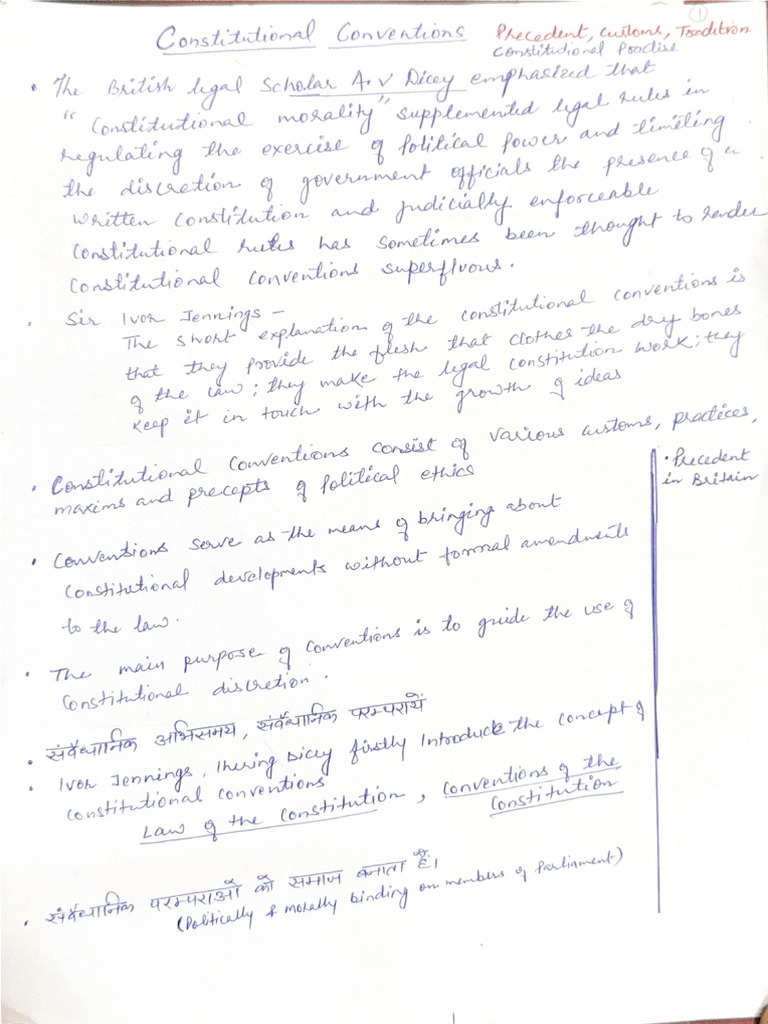 ①
Constitutional Conventions Precedent, Customs, Tradition
Constitutional Practise
• The British legal Scholar A.V Dicey emphasized that
"Constitutional morality" supplemented legal rules in
regulating the exercise of political power and limiting
the discretion of government officials the presence of a
written constitution and judicially enforceable
constitutional rules has sometimes been thought to render
constitutional conventions superfluous.
• Sir Ivor Jennings –
The short explanation of the constitutional conventions is
that they provide the flesh that clothes the dry bones
of the law; they make the legal constitution work; they
keep it in touch with the growth of ideas
• Constitutional conventions consist of various customs, practices,
maxims and precepts of political ethics
• Precedent
in Britain
• Conventions serve as the means of bringing about
constitutional developments without formal amendments
to the law.
• The main purpose of conventions is to guide the use of
constitutional discretion.
• संवैधानिक अभिसमय, संवैधानिक परम्परायें
• Ivor Jennings, Dicey firstly Introduce the concept of
constitutional conventions
Law of the Constitution, Conventions of the
Constitution
• संवैधानिक परम्पराओ को समाज बनाता हैं।
(Politically & morally binding on members of Parliament)
1